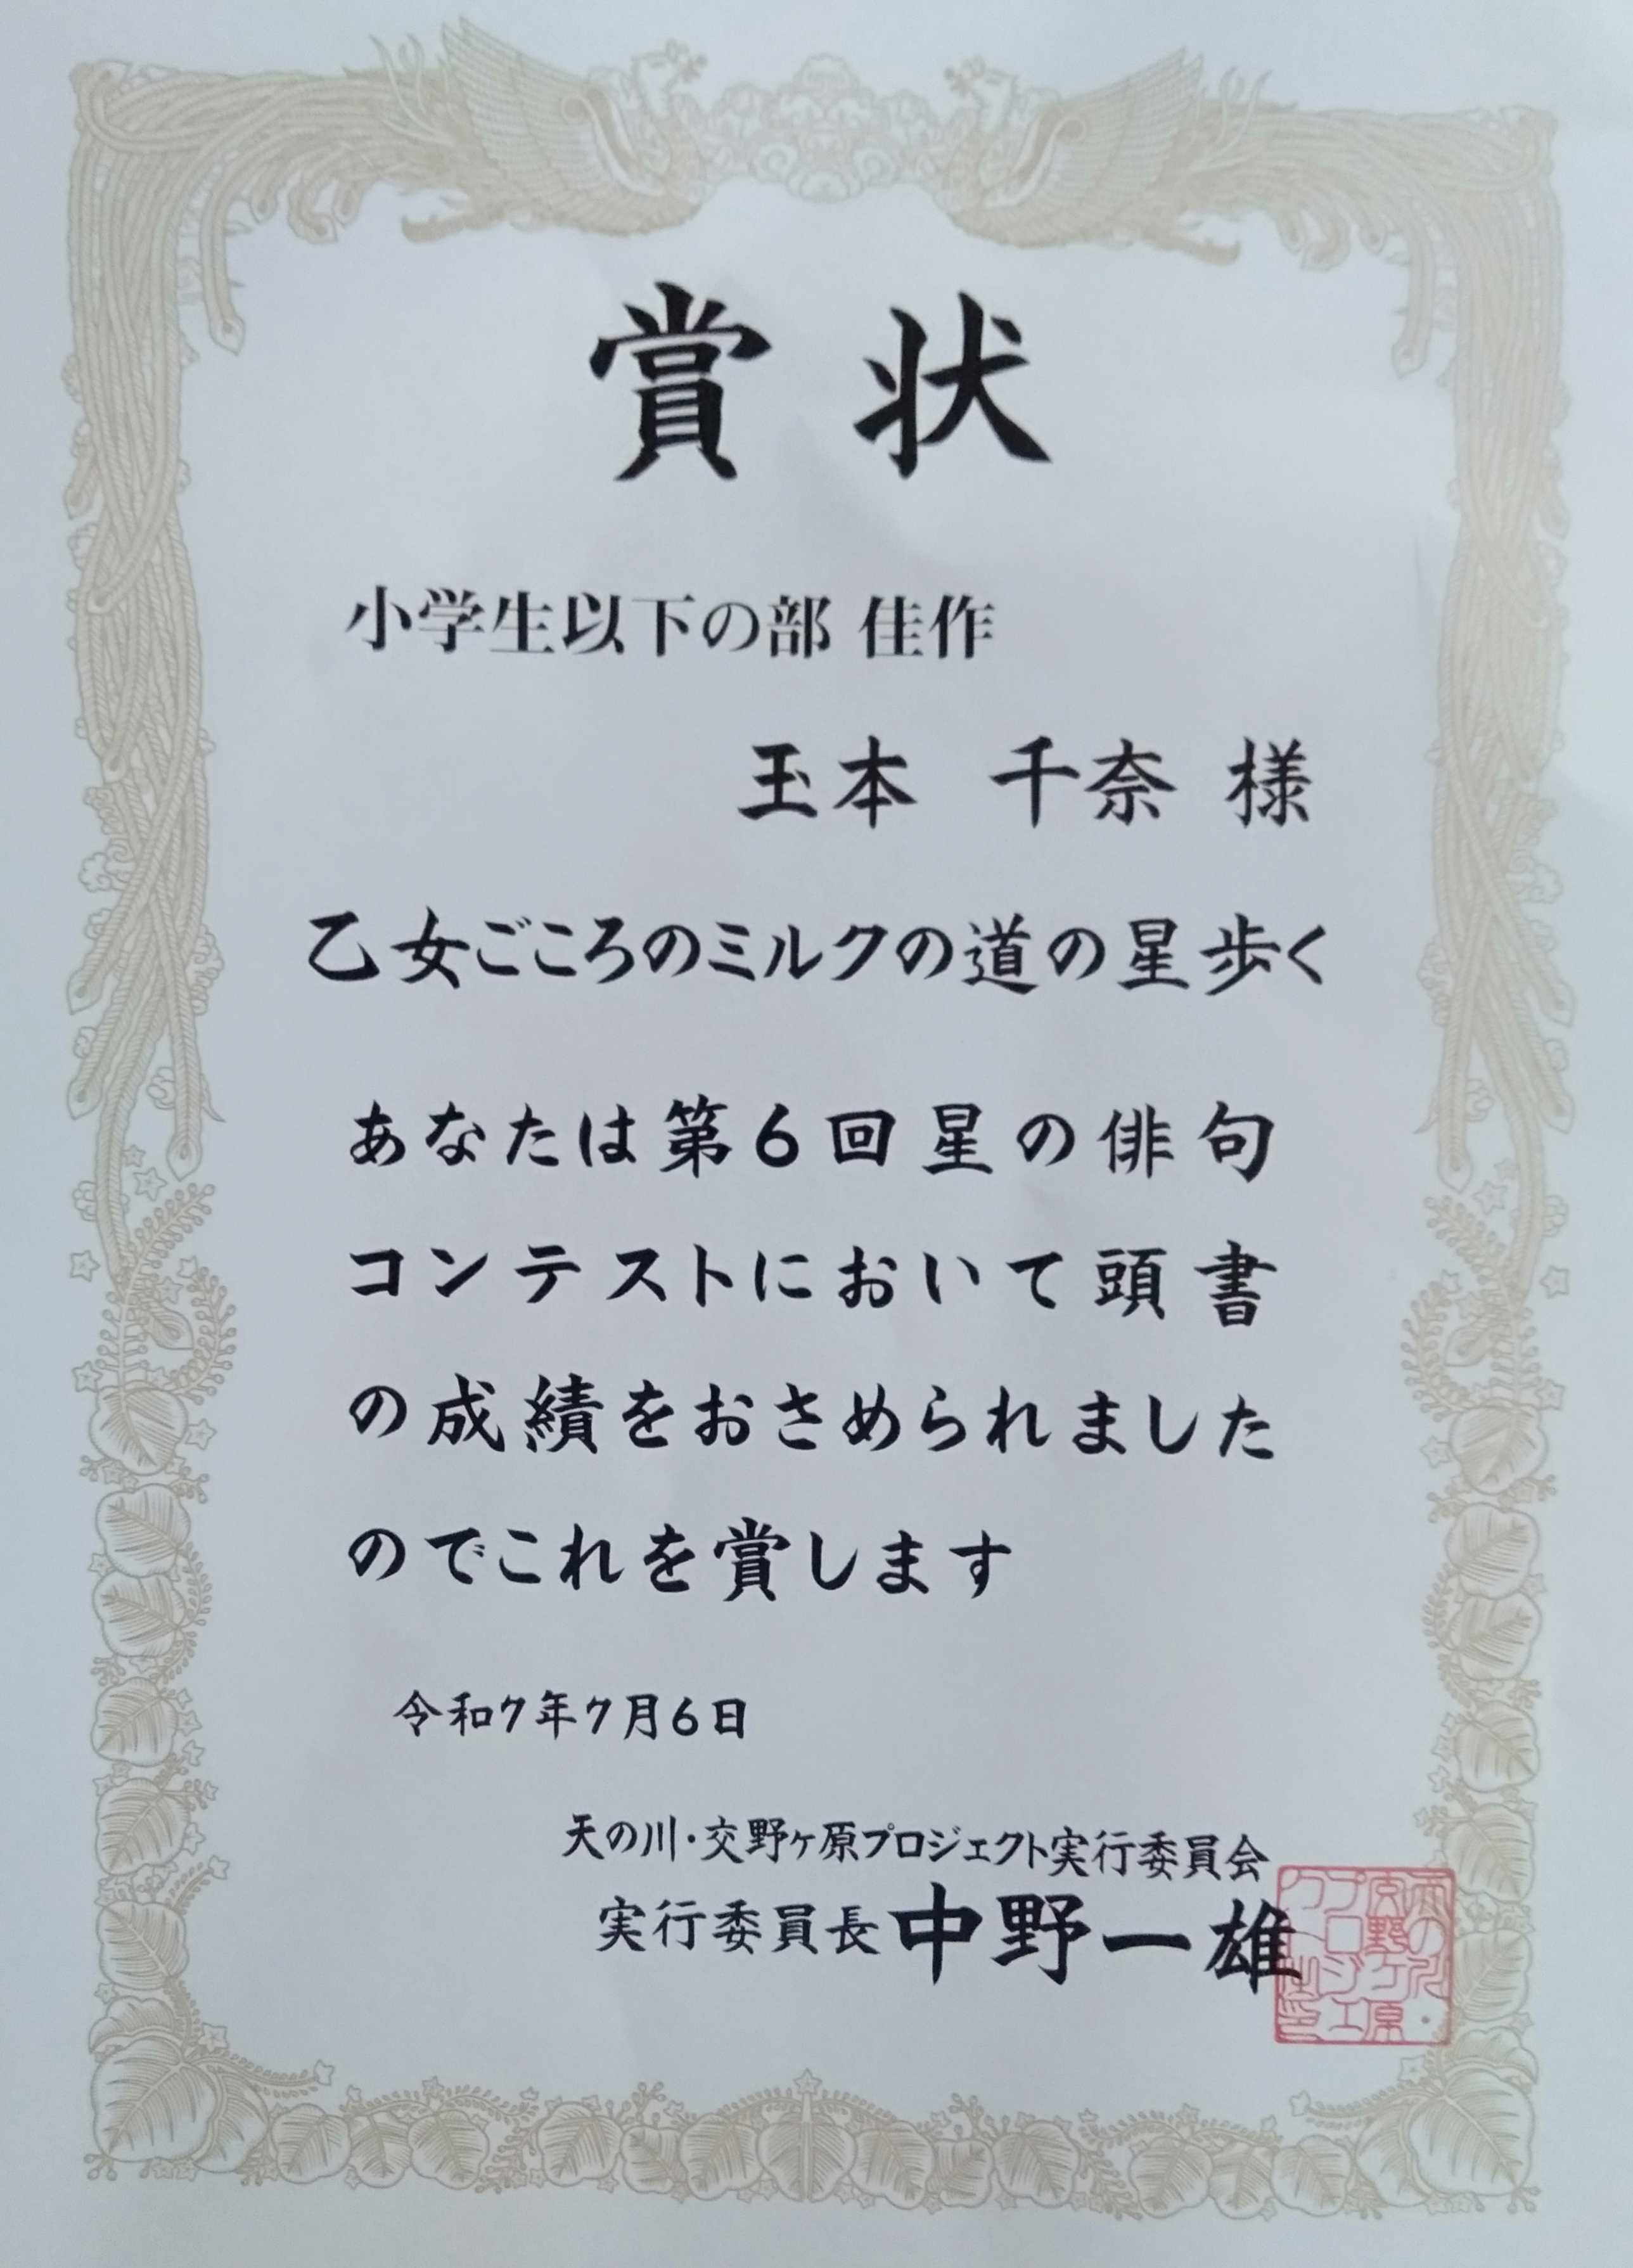 賞状
小学生以下の部 佳作
玉本 千奈 様
乙女ごころのミルクの道の星歩く
あなたは第6回星の俳句
コンテストにおいて頭書
の成績をおさめられました
のでこれを賞します
令和7年7月6日
天の川・交野ヶ原プロジェクト実行委員会
実行委員長 中野一雄